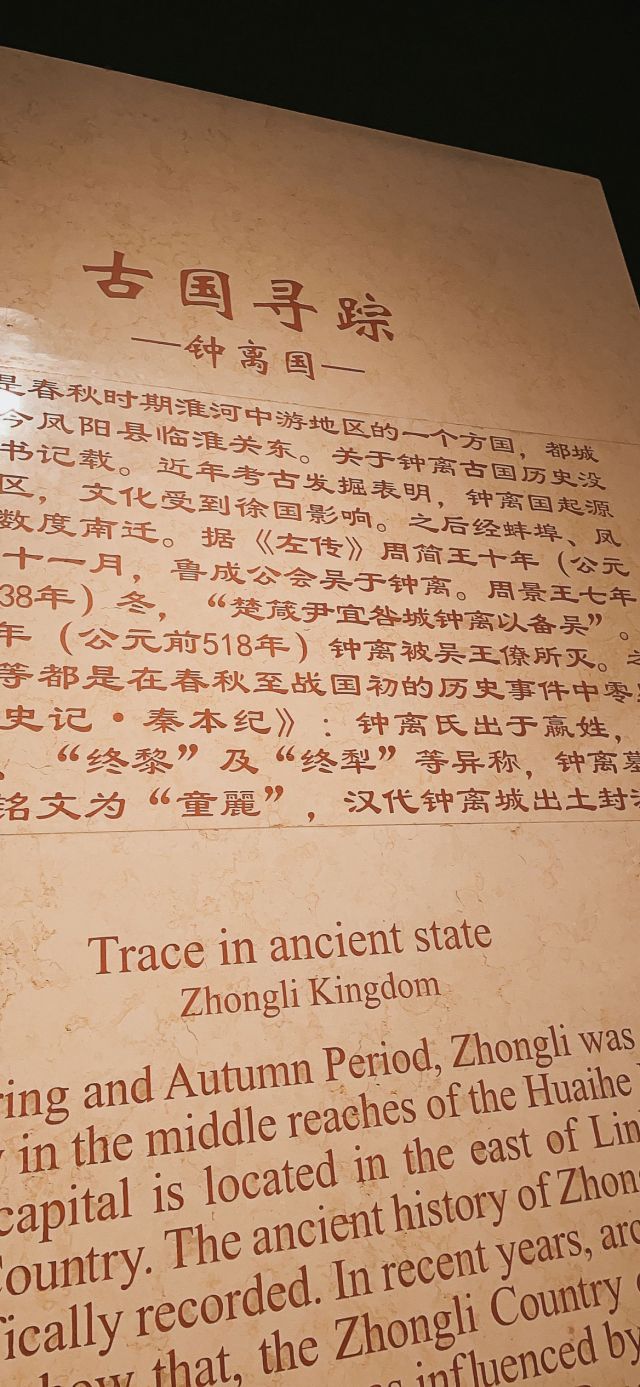 古国寻踪
—钟离国—
是春秋时期淮河中游地区的一个方国，都城
今凤阳县临淮关东。关于钟离古国历史没
书记载。近年考古发掘表明，钟离国起源
区，文化受到徐国影响。之后经蚌埠、凤
数度南迁。据《左传》周简王十年（公元
十一月，鲁成公会吴于钟离。周景王七年
38年）冬，“楚箴尹宜咎城钟离以备吴”。
年（公元前518年）钟离被吴王僚所灭。
等都是在春秋至战国初的历史事件中零
史记·秦本纪》：钟离氏出于嬴姓，
，“终黎”及“终犁”等异称，钟离墓
铭文为“童麗”，汉代钟离城出土封
Trace in ancient state
Zhongli Kingdom
ring and Autumn Period, Zhongli was
y in the middle reaches of the Huaihe
capital is located in the east of Lin
Country. The ancient history of Zhon
ically recorded. In recent years, arc
how that, the Zhongli Country
influenced by